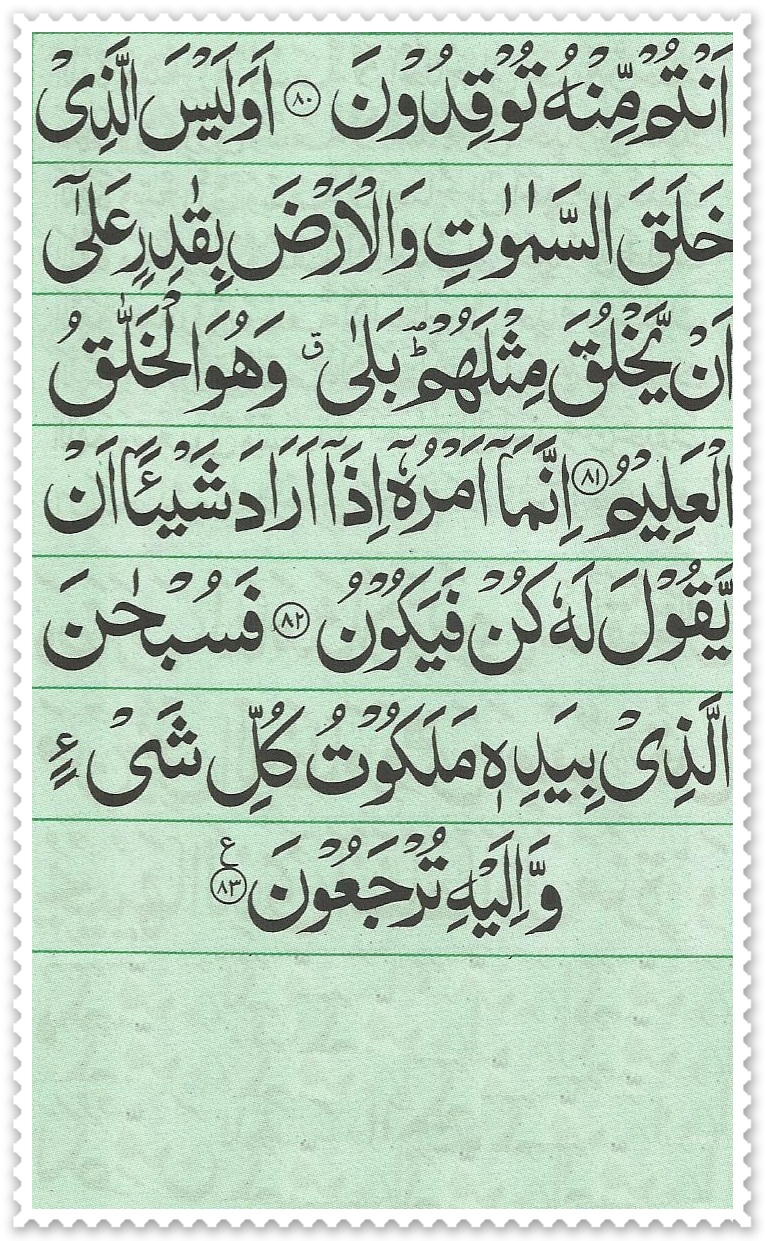 اَنْتُمْ مِّنْهُ تُوْقِدُوْنَ ﴿۸۰﴾ اَوَلَيْسَ الَّذِیْ
خَلَقَ السَّمٰوٰتِ وَالْاَرْضَ بِقٰدِرٍ عَلٰۤی
اَنْ يَّخْلُقَ مِثْلَهُمْ ؕؔ بَلٰی ۗ وَهُوَ الْخَلّٰقُ
الْعَلِيْمُ ﴿۸۱﴾ اِنَّمَاۤ اَمْرُهٗۤ اِذَاۤ اَرَادَ شَيْئًا اَنْ
يَّقُوْلَ لَهٗ كُنْ فَيَكُوْنُ ﴿۸۲﴾ فَسُبْحٰنَ
الَّذِیْ بِيَدِهٖ مَلَكُوْتُ كُلِّ شَیْءٍ
وَّاِلَيْهِ تُرْجَعُوْنَ ﴿۸۳﴾ ع